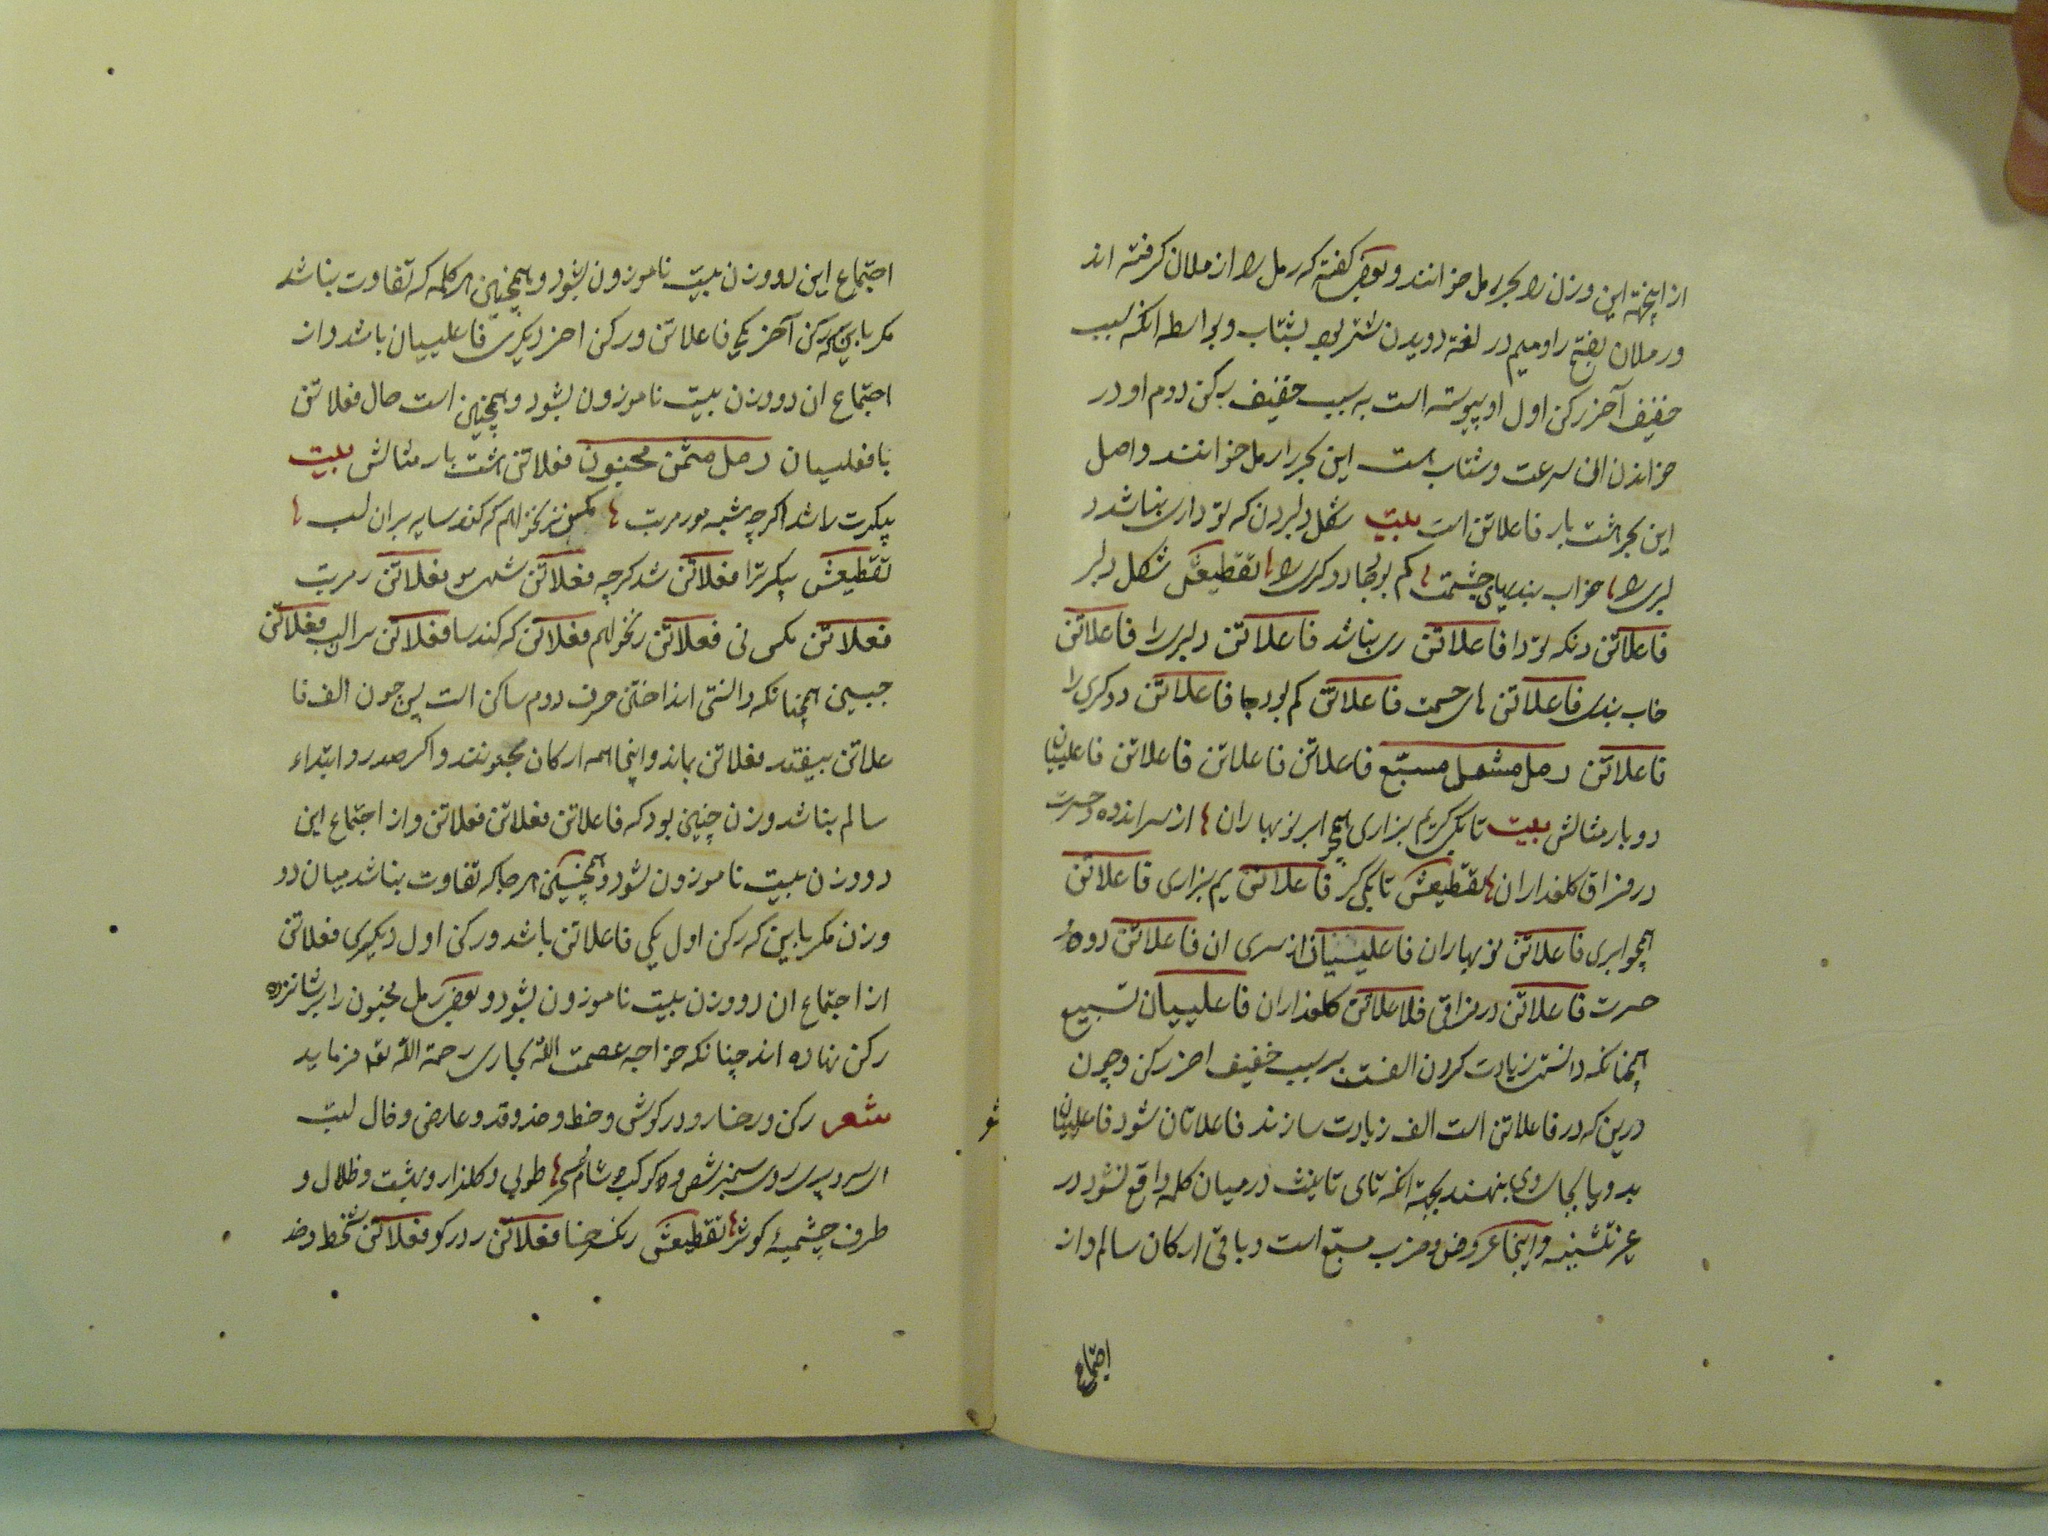 از اینجهة این وزن را بحر رمل خوانند و بعضی کفته که رمل را از رملان کرفته اند
و رملان بفتح را و میم در لغة دویدن شتر بود بشتاب و بواسطه انکه سبب
خفیف آخر رکن اول او پیوسته است به سبب خفیف رکن دوم او در
خواندن ان سرعت و شتاب هست این بحر را رمل خوانند و اصل
این بحر هشت بار فاعلاتن است بیت شکل دلبردن که تو داری نباشد د
لبری را خواب بندیهای چشمت کم بود جادوکری را تقطیعش شکل دلبر
فاعلاتن دنکه تو دا فاعلاتن ری نباشد فاعلاتن دلبری را فاعلاتن
خاب بندی فاعلاتن های چسمت فاعلاتن کم بود جا فاعلاتن دوکری را
فاعلاتن رمل مثمن مسبّع فاعلاتن فاعلاتن فاعلاتن فاعلییان
دو بار مثالش بیت تا بکی کریم بزاری همچو ابر نوبهاران از سر اندوه و حسرت
در فراق کلعذاران تقطیعش تا بکی کر فاعلاتن یم بزاری فاعلاتن
همچو ابری فاعلاتن نو بهاران فاعلییان از سری ان فاعلاتن دوه
حسرت فاعلاتن در فراق فاعلاتن کلعذاران فاعلییان تسبیع
همچنانکه دانستی زیادت کردن الفست بر سبب خفیف اخر رکن و چون
درین که در فاعلاتن است الف زیادت سازند فاعلاتان شود فاعلییان
بدو یا بجای وی بنهند بجهة انکه تای تانیث در میان کلمه واقع نشود در
غیر تثنیه و اینجا عروض و ضرب مسبّع است و باقی ارکان سالم و از
اجتماع
اجتماع این دو وزن بیت ناموزون نشود و همچنین هر کلمه که تفاوت نباشد
مکر باین که رکن آخر یکی فاعلاتن و رکن اخر دیکری فاعلییان باشد و از
اجتماع ان دو وزن بیت ناموزون نشود و همچنین است حال فعلاتن
با فعلییان رمل مثمن مخبون فعلاتن هشت بار مثالش بیت
شکرت را شد اکرچه شبه مور مربت مکسی نیز نخواهم که کند سایه بران لب
تقطیعش شکرترا فعلاتن شد کرچه فعلاتن شبه مو فعلاتن رمربت
فعلاتن مکسی نی فعلاتن زنخواهم فعلاتن که کند سا فعلاتن برالب فعلاتن
خبین همچنانکه دانستی انداختن حرف دوم ساکن است پس چون الف فا
علاتن بیفتد فعلاتن بماند و اینجا همه ارکان مخبونند و اکر صدر و ابتداء
سالم باشد وزن چنین بود که فاعلاتن فعلاتن فعلاتن و از اجتماع این
دو وزن بیت ناموزون نشود و همچنین هرجا که تفاوت نباشد میان دو
وزن مکر باین که رکن اول یکی فاعلاتن باشد و رکن اول دیکری فعلاتن
از اجتماع ان دو وزن بیت ناموزون نشود و بعضی رمل مخبون را بر شانزده
رکن نهاده اند چنانکه خواجه عصمت الله بخاری رحمة الله تعه فرماید
شعر رنک رخسار و در کوش و خط و خد و قد و عارض و خال لبت
طوبی و کلنار و بهشت و ظلال و
طرف چشمیه کوثر تقطیعش رنک رخسا فعلاتن ر در کو فعلاتن شخط و خد